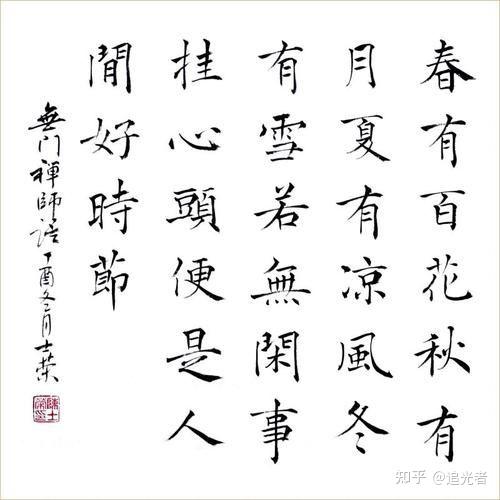 春有百花秋有
月夏有凉風冬
有雪若無閑事
挂心頭便是人
間好時節
無门禪師語丁酉冬月士荣
知乎 @追光者